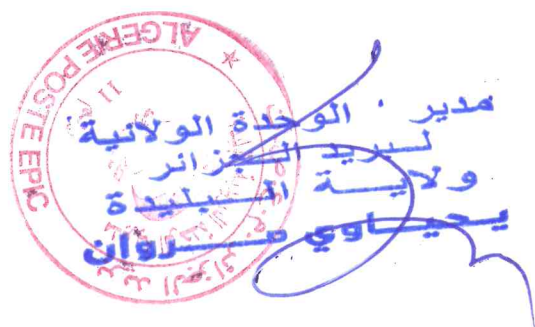 ALGERIE POSTE EPIC
مدير الوحدة الولائية
لبريد الجزائر
ولاية البليدة
يحياوي مروان